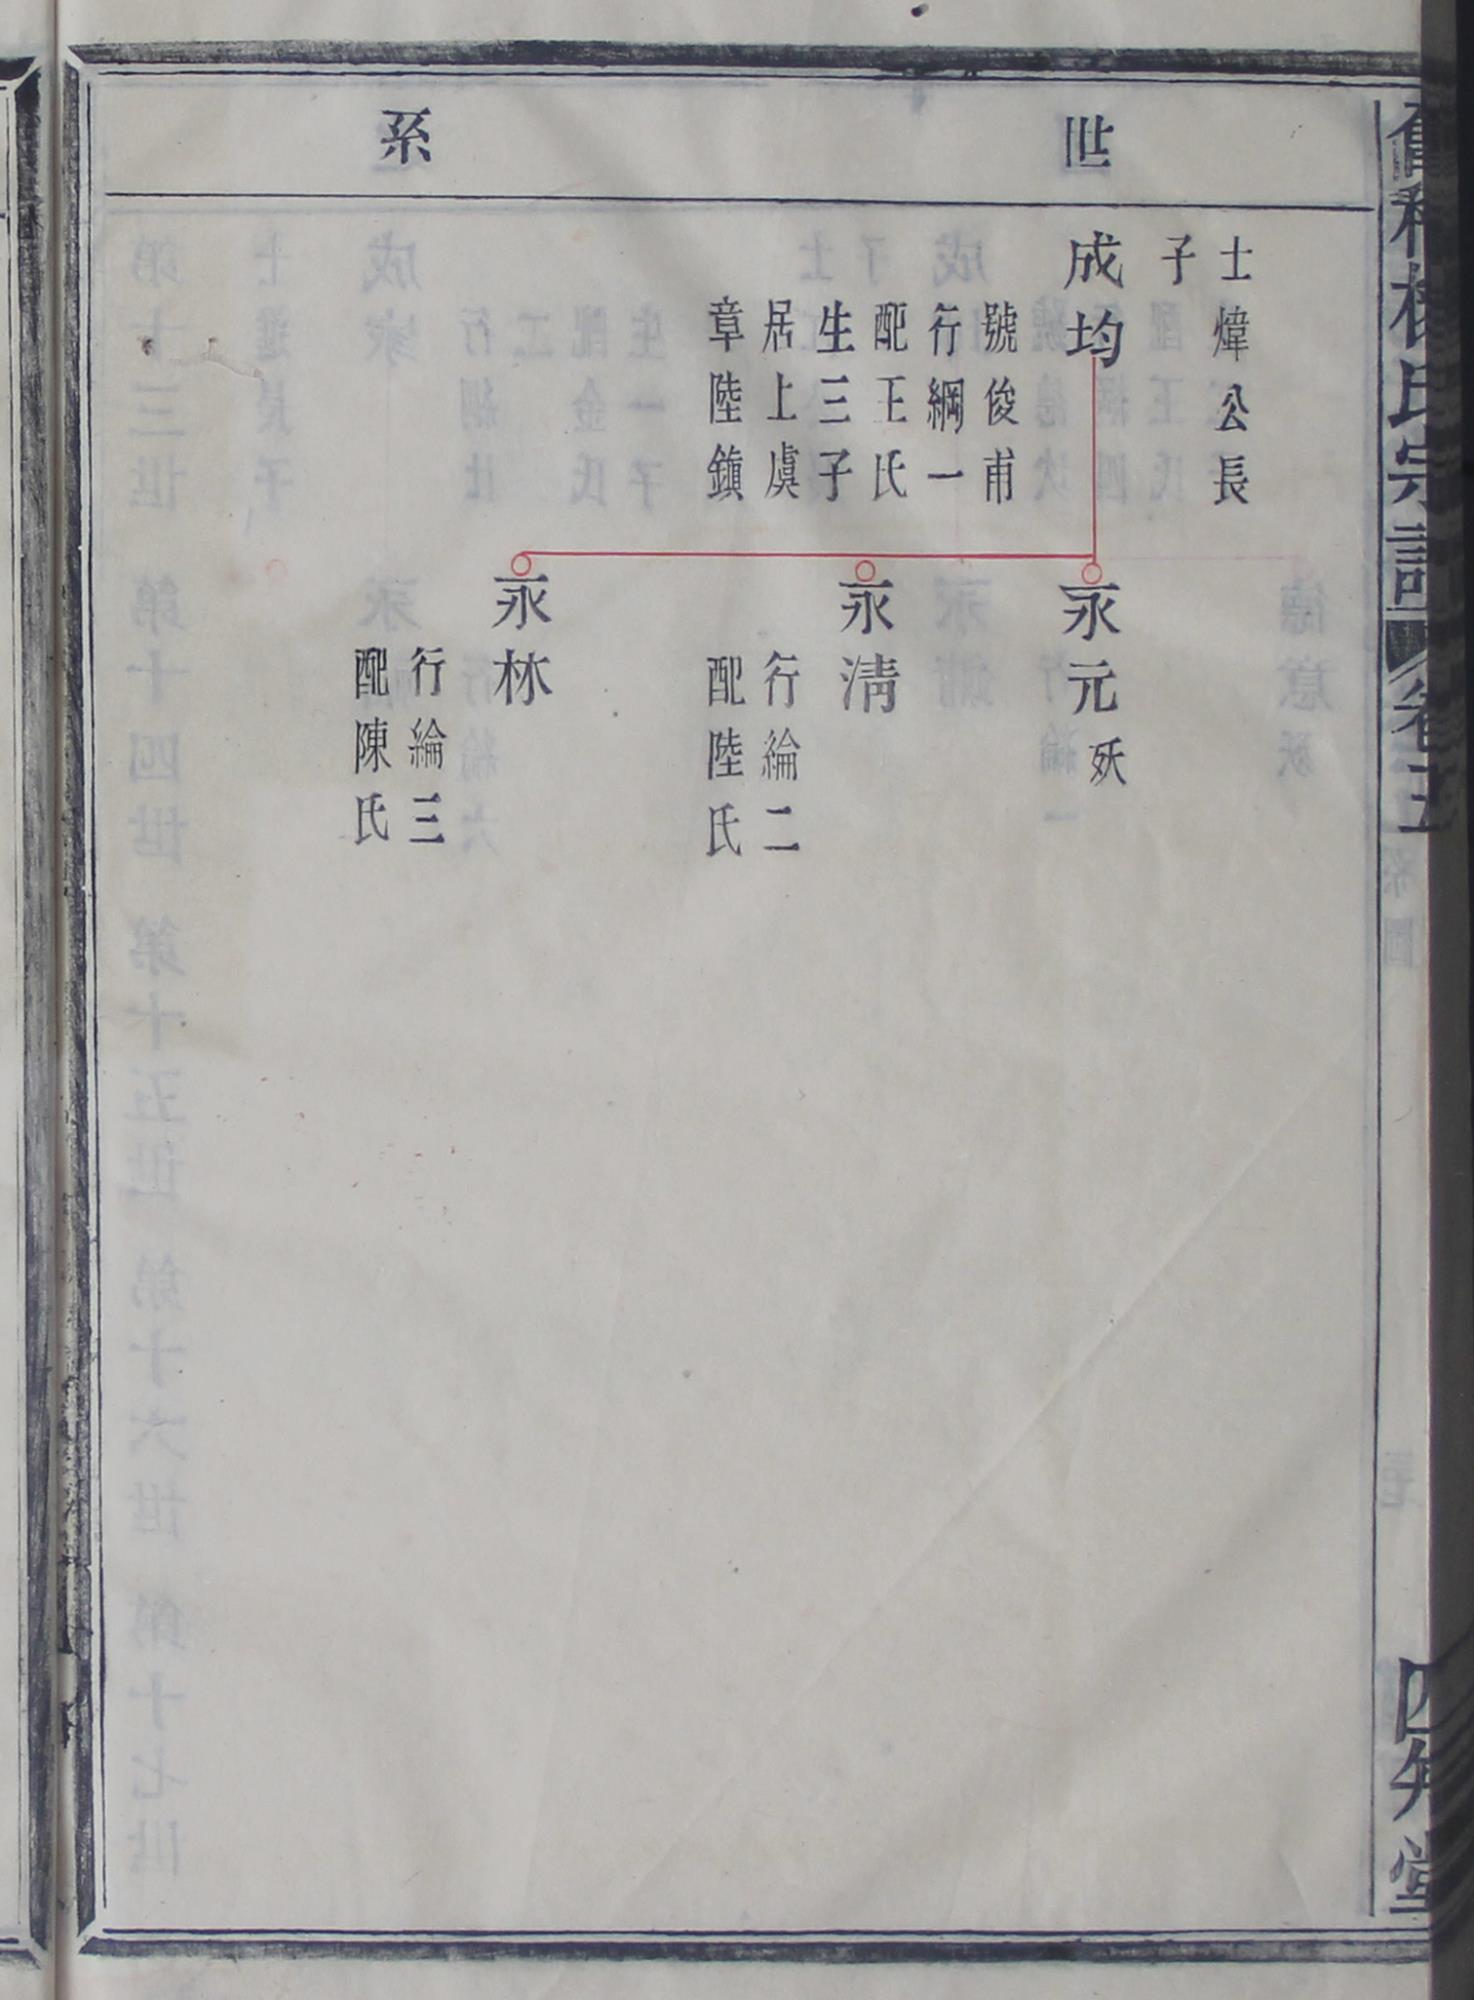 世
系
士煒公長
子
成均
號俊甫
行綱一
配王氏
生三子
居上虞
章陸鎮
永元 殀
永清
行綸二
配陸氏
永林
行綸三
配陳氏
楊氏宗譜
卷五
四知堂